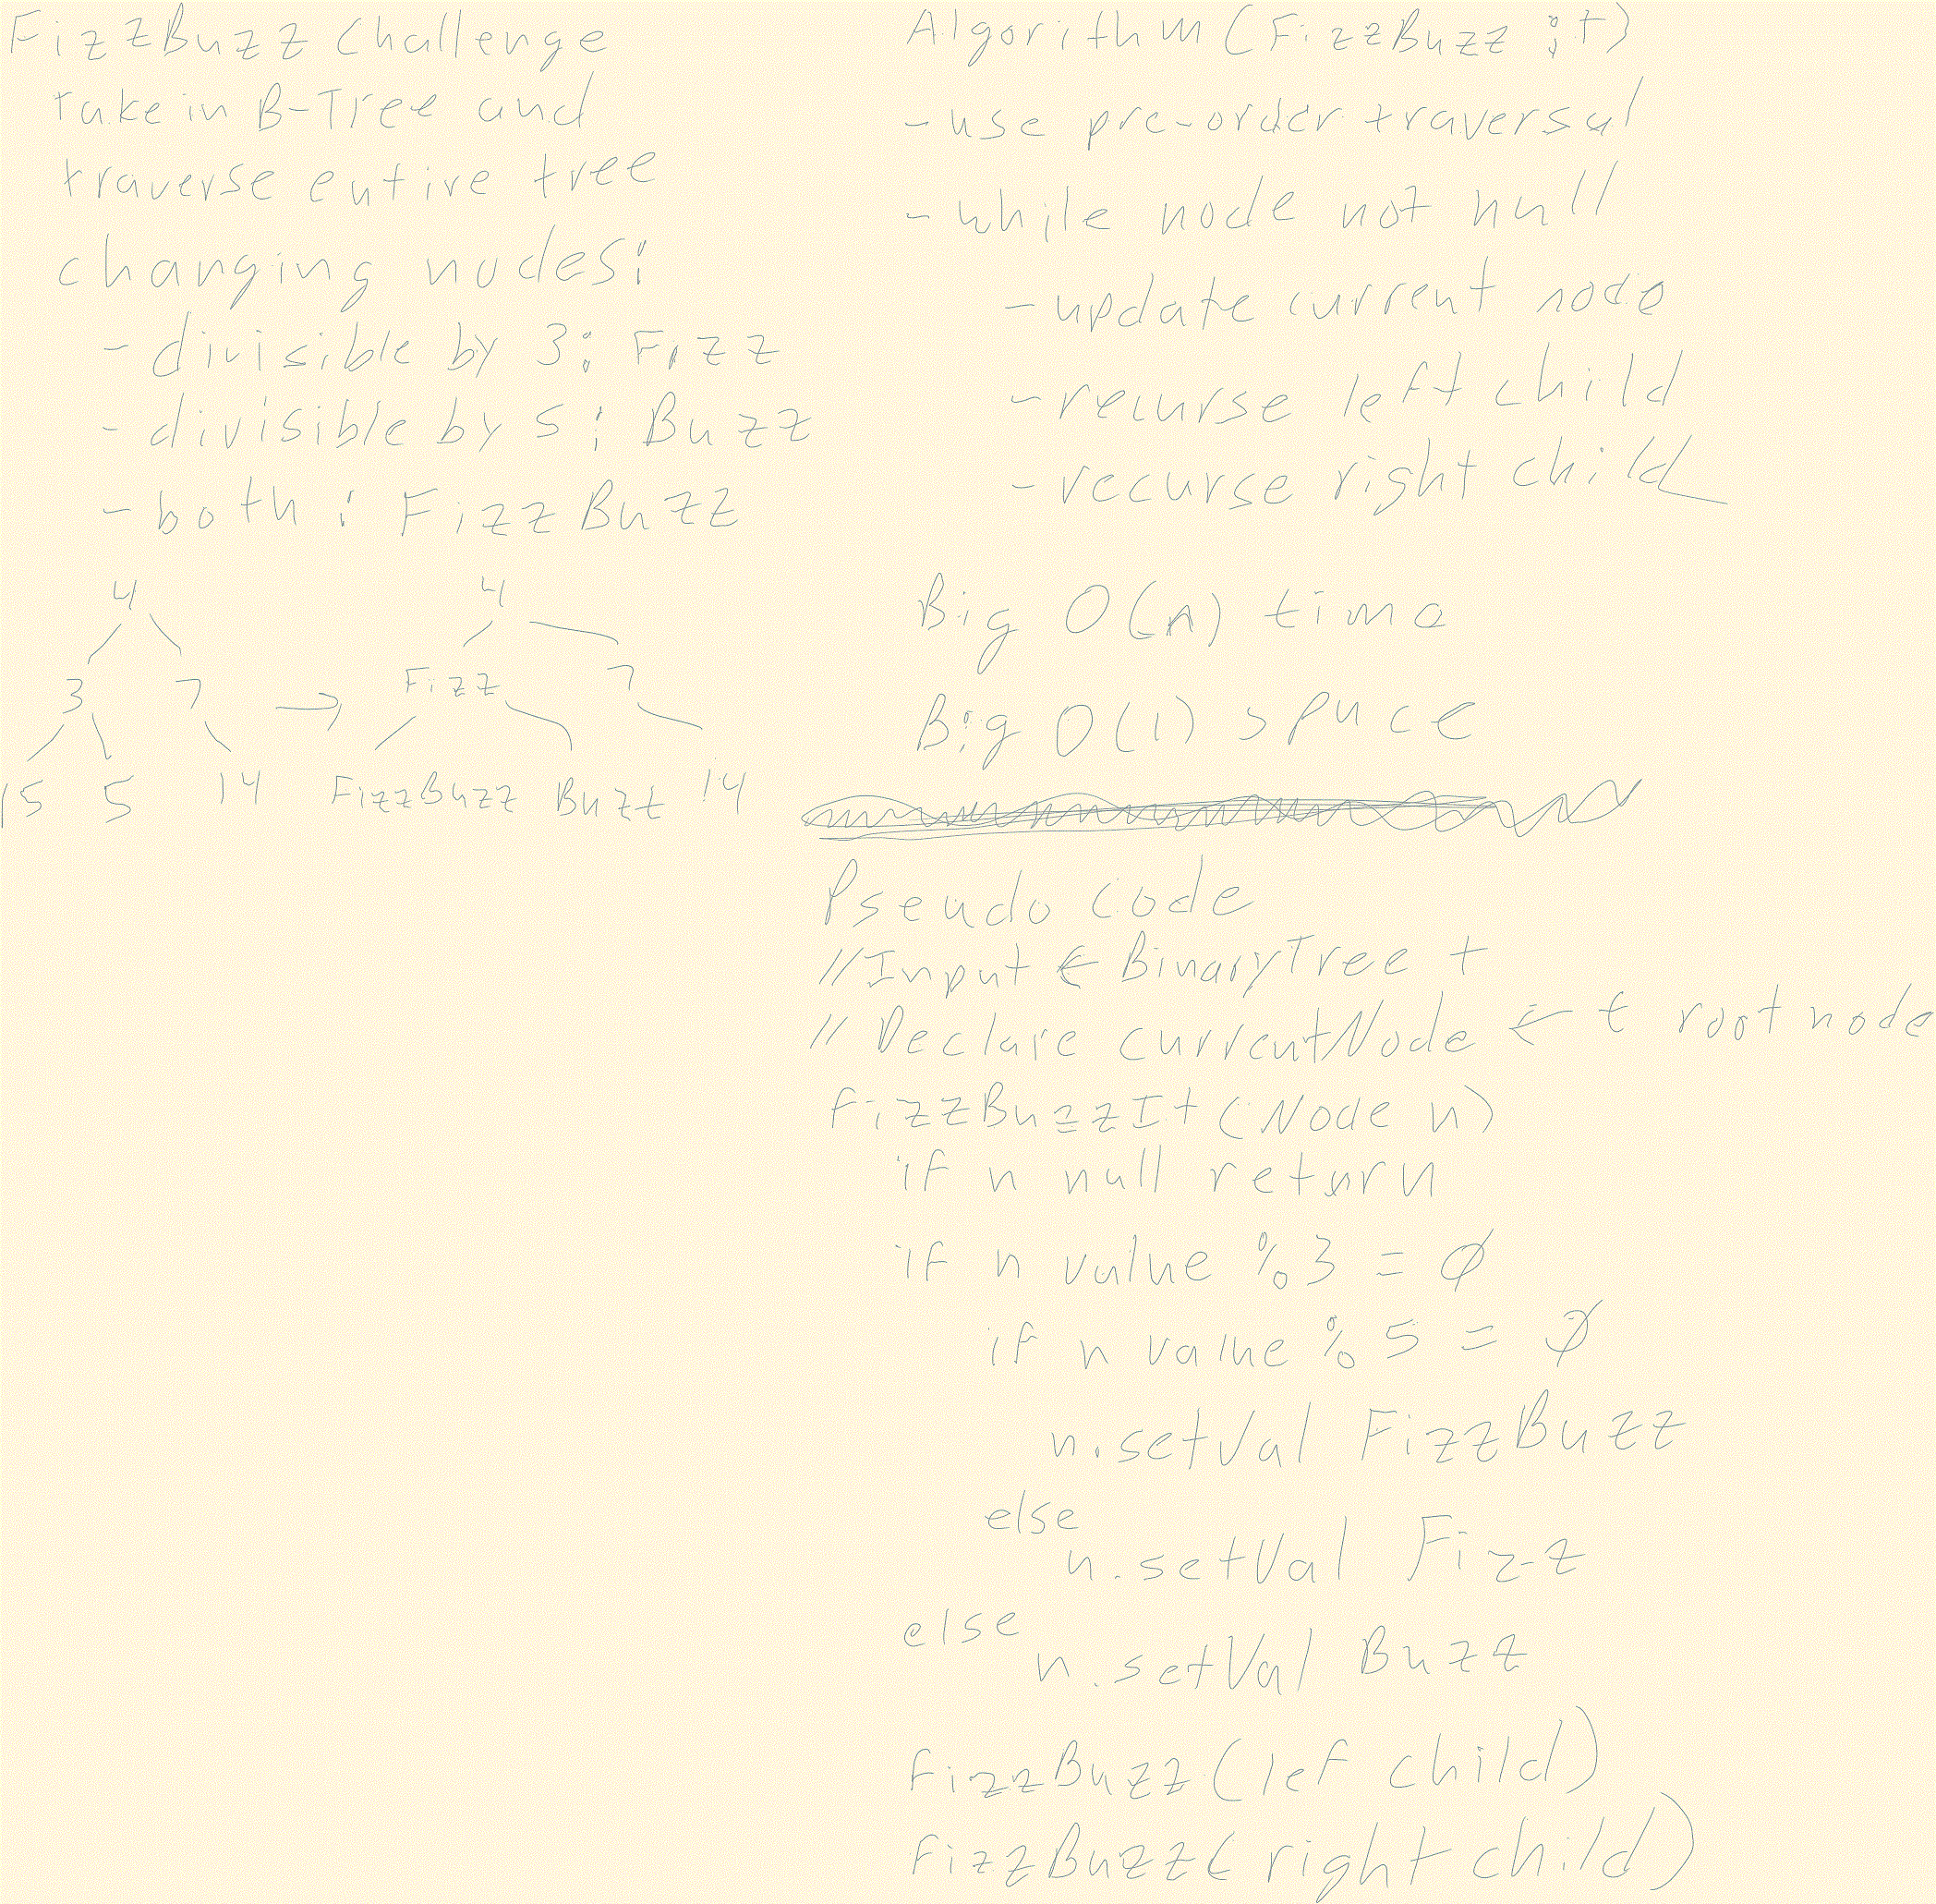 FizzBuzz Challenge
take in B-Tree and
traverse entire tree
changing nodes:
- divisible by 3: Fizz
- divisible by 5: Buzz
- both: FizzBuzz
4
3 7
15 5 14
→
4
Fizz 7
FizzBuzz Buzz 14
Algorithm (FizzBuzz it)
- use pre-order traversal
- while node not null
- update current node
- recurse left child
- recurse right child
Big O(n) time
Big O(1) space
Pseudo code
//Input ← BinaryTree t
// Declare currentNode ← t root node
FizzBuzzIt (Node n)
if n null return
if n value % 3 = 0
if n value % 5 = 0
n.setVal FizzBuzz
else
n.setVal Fizz
else
n.setVal Buzz
FizzBuzz (lef child)
FizzBuzz (right child)